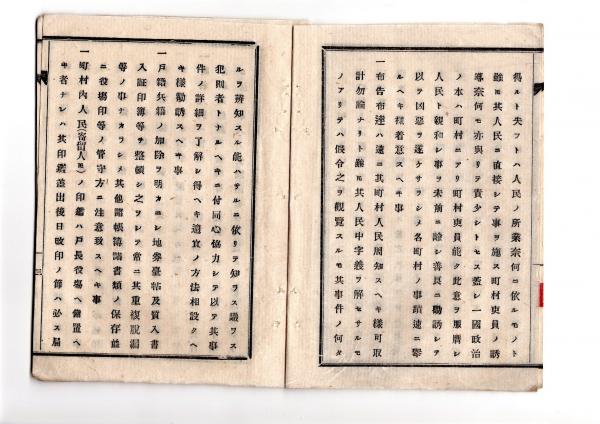 得ルト失フトハ人民ノ所業奈何ニ依ルモノト
雖モ其人民ニ直接シテ事ヲ施ス町村吏員ノ誘
導奈何モ亦與リテ責少シトセス蓋シ一國政治
ノ本ハ町村ニアリ町村吏員能ク此意ヲ服膺シ
人民ト親和シ事ヲ未前ニ諭シ善良ニ勸誘シテ
以テ凶惡ヲ遂ケサラシメ各町村ノ事蹟違ニ擧
ルヘキ樣着意スヘキ事
一布告布達ハ遠ニ其町村人民周知スヘキ樣可取
計勿論ナリト雖モ其人民中字義ヲ解セサルモ
ノアリテハ假令之ヲ觀覽スルモ其事件ノ何タ
ルヲ辨知スル能ハサルニ依リテ知ラス識ラス
犯則者トナルヘキニ付同心協力シテ以テ其事
件ノ詳細ヲ了解シ得ヘキ適宜ノ方法相設クヘ
キ樣勸誘スヘキ事
一戸籍兵籍ノ加除ヲ明カニシ地券臺帖及質入書
入証印簿等ヲ整頓シ之ヲシテ常ニ其重複脱漏
等ノ事ナカラシメ其他諸帳簿諸書類ノ保存並
ニ役場印等ノ管守方ニ注意致スヘキ事
一町村內人民(寄留人モ)ノ印鑑ハ戸長役塲ヘ備置ヘ
キ者ナレハ其印鑑差出後日改印ノ節ハ必ス屆
三